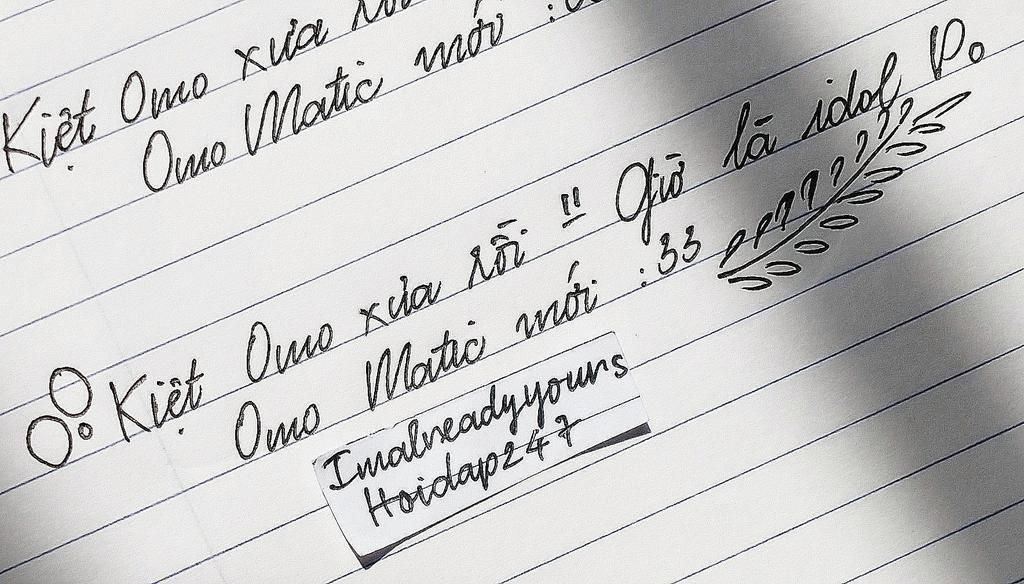 Kiệt Omo xưa rồi
Omo Matic mới :33
Kiệt Omo xưa rồi !! Giờ là idol Po
Omo Matic mới :33
Imalreadyyours
Hoidap247